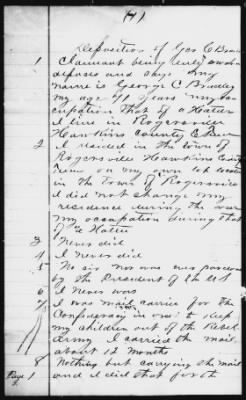 (1)
Deposition of Geo C Bradley
1 Claimant being duly sworn
deposes and says My
name is George C Bradley
my age 41 years my oc
cupation that of a Hatter
I live in Rogersville
Hawkins County E Tenn
2 I resided in the town of
Rogersville Hawkins County
Tenn on my own lot
in the Town of Rogersville
I did not change my
residence during the war
my occupation during that
of a Hatter
3 Never did
4 I never did
5 No sir nor was ever pardoned
by the President of the US
6 I never was
7 I was mail carrier for the
Confederacy in order to keep
my children out of the Rebel
Army I carried the mail
about 12 months
8 Nothing but carrying the mail
and I did that for the
Page 1